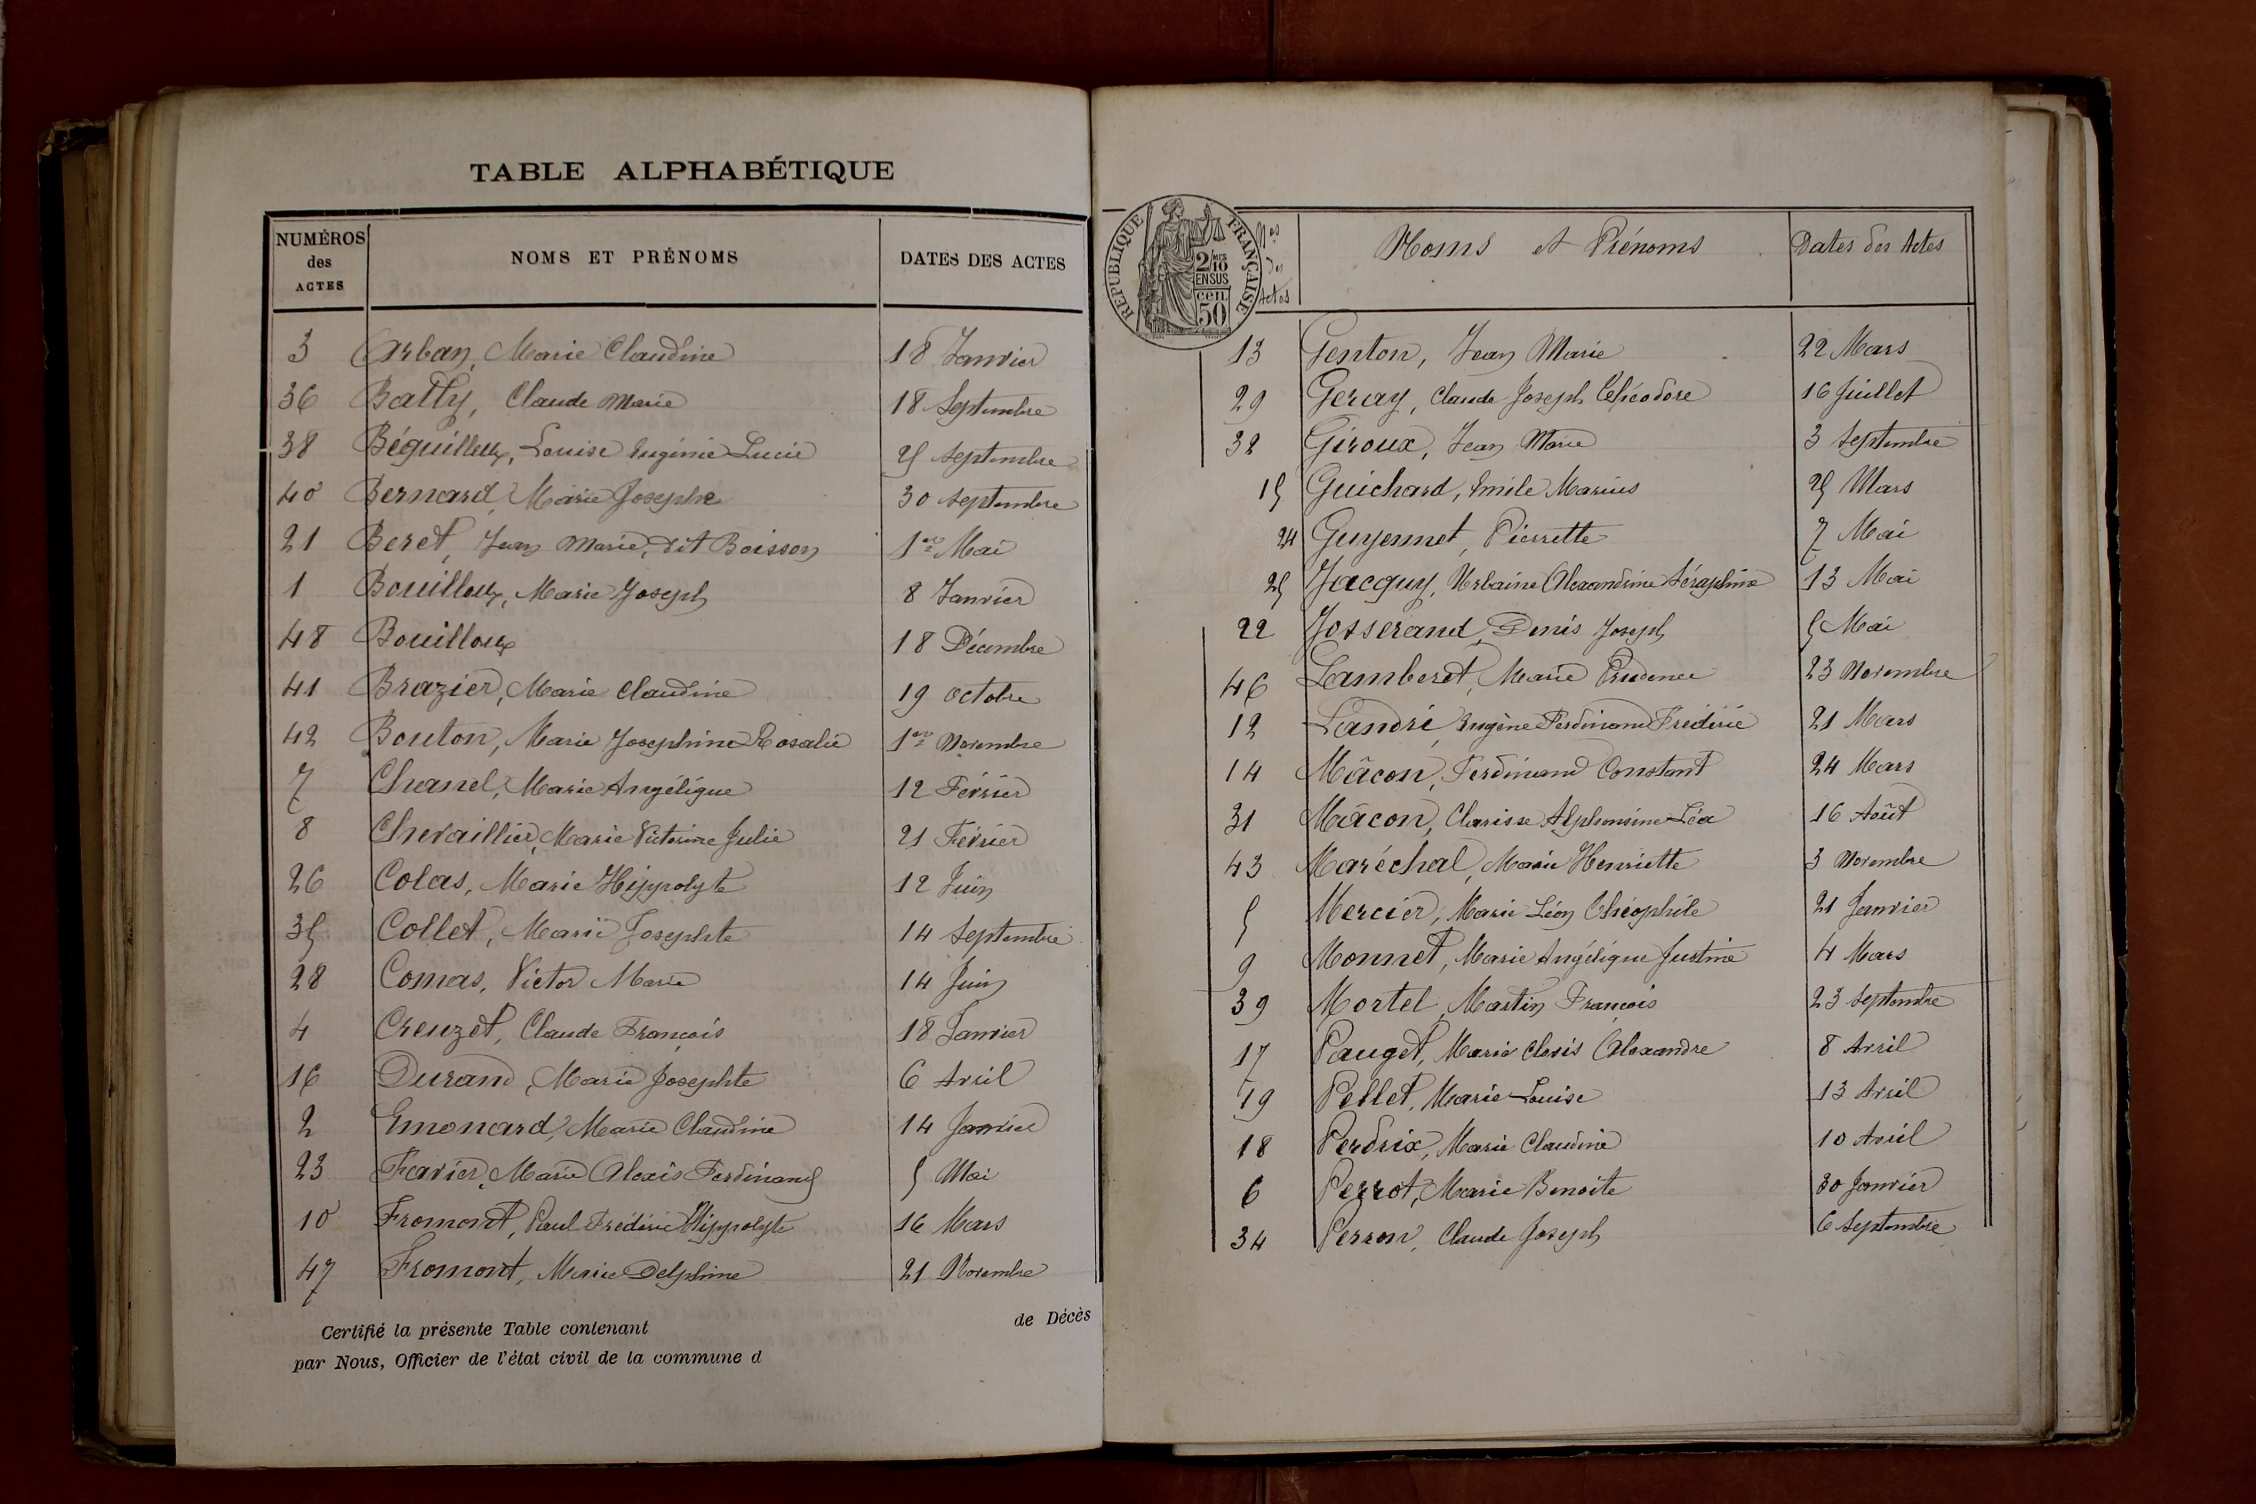 TABLE ALPHABÉTIQUE
NUMÉROS des ACTES NOMS ET PRÉNOMS DATES DES ACTES
3 Arban, Marie Claudine 18 Janvier
36 Bally, Claude Marie 18 Septembre
38 Béguilloux, Louise Eugénie Lucie 25 Septembre
40 Bernard, Marie Josephe 30 Septembre
21 Beret, Jean Marie, dit Boisson 1er Mai
1 Bouilloux, Marie Joseph 8 Janvier
48 Bouilloux 18 Décembre
41 Brazier, Marie Claudine 19 Octobre
42 Bouton, Marie Josephine Rosalie 1er Novembre
7 Chanel, Marie Angélique 12 Février
8 Chevaillier, Marie Victorine Julie 21 Février
26 Colas, Marie Hippolyte 12 Juin
35 Collet, Marie Josephte 14 Septembre
28 Comas, Victor Marie 14 Juin
4 Creuzet, Claude François 18 Janvier
16 Durand, Marie Josephte 6 Avril
2 Emonard, Marie Claudine 14 Janvier
23 Favier, Marie Alexis Ferdinand 5 Mai
10 Fromont, Paul Frédéric Hippolyte 16 Mars
47 Fromont, Marie Delphine 21 Novembre
Certifié la présente Table contenant de Décès
par Nous, Officier de l'état civil de la commune d
RÉPUBLIQUE FRANÇAISE
2/10 EN SUS
50 cen
Nos des Actes Noms et Prénoms Dates des Actes
13 Genton, Jean Marie 22 Mars
29 Geray, Claude Joseph Théodore 16 Juillet
32 Giroux, Jean Marie 3 Septembre
15 Guichard, Emile Marius 25 Mars
24 Guyennet, Pierrette 7 Mai
25 Jacquy, Urbaine Alexandrine Séraphine 13 Mai
22 Josserand, Denis Joseph 5 Mai
46 Lamberet, Marie Prudence 23 Novembre
12 Landri, Eugène Ferdinand Frédéric 21 Mars
14 Mâcon, Ferdinand Constant 24 Mars
31 Mâcon, Clarisse Alphonsine Léa 16 Août
43 Maréchal, Marie Henriette 3 Novembre
5 Mercier, Marie Léon Théophile 21 Janvier
9 Monnet, Marie Angélique Justine 4 Mars
39 Mortel, Martin François 23 Septembre
17 Pauget, Marie Clovis Alexandre 8 Avril
19 Pellet, Marie Louise 13 Avril
18 Perdrix, Marie Claudine 10 Avril
6 Perrot, Marie Benoîte 30 Janvier
34 Perron, Claude Joseph 6 Septembre